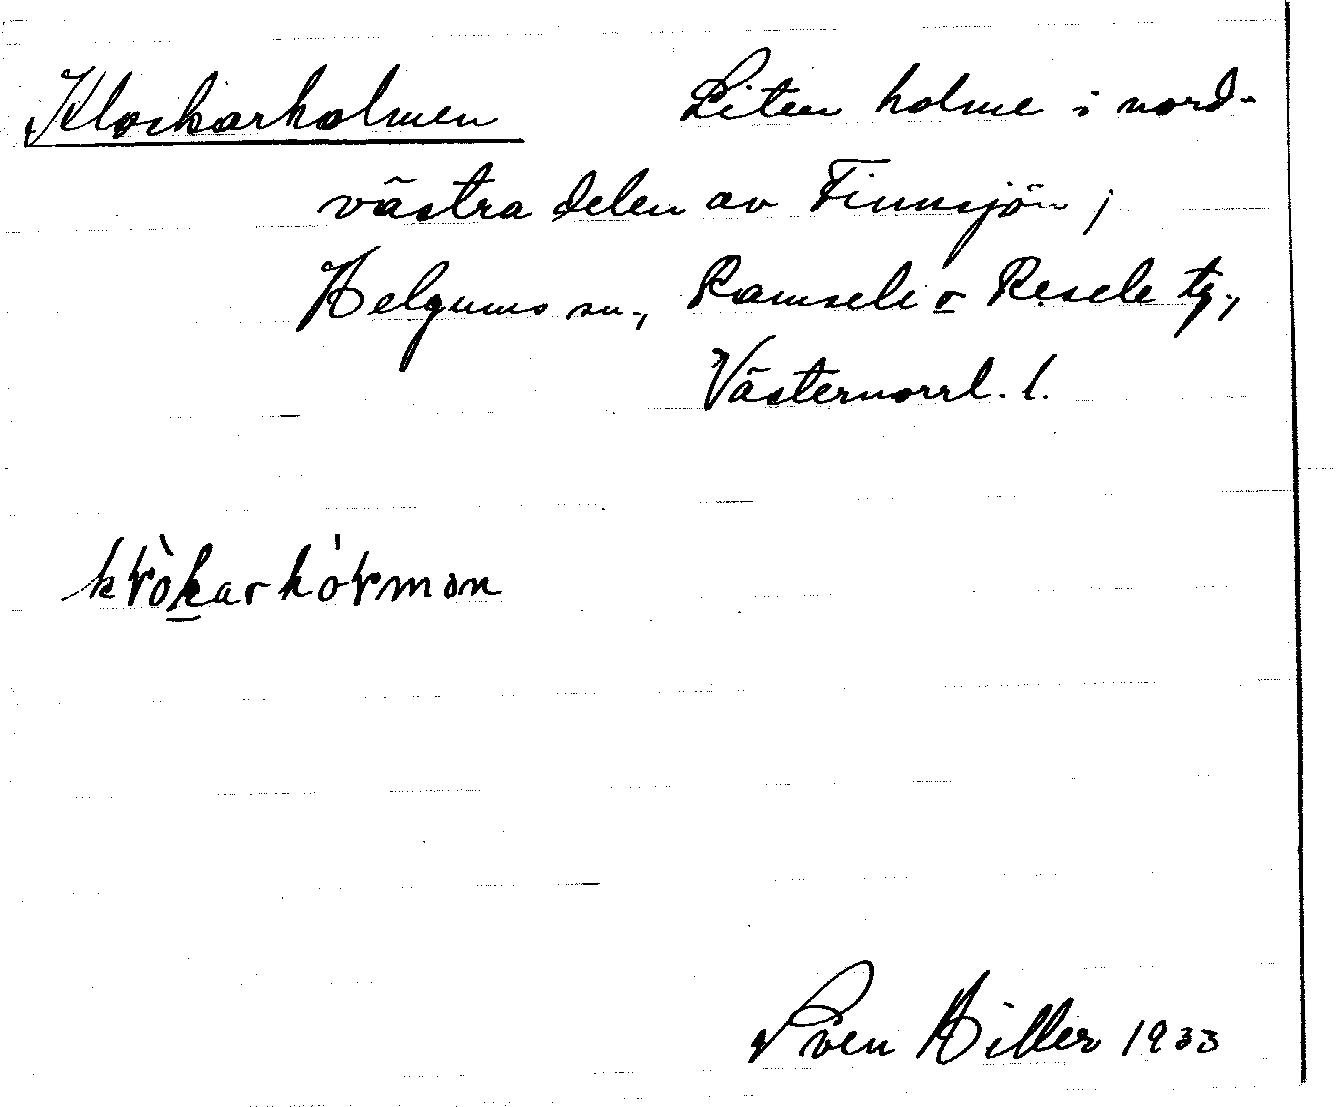 Klockarholmen Liten holme i nord-
västra delen av Finnsjön,
Helgums sn., Ramsele o Resele tg.,
Västernorrl. l.
Sven Hiller 1933